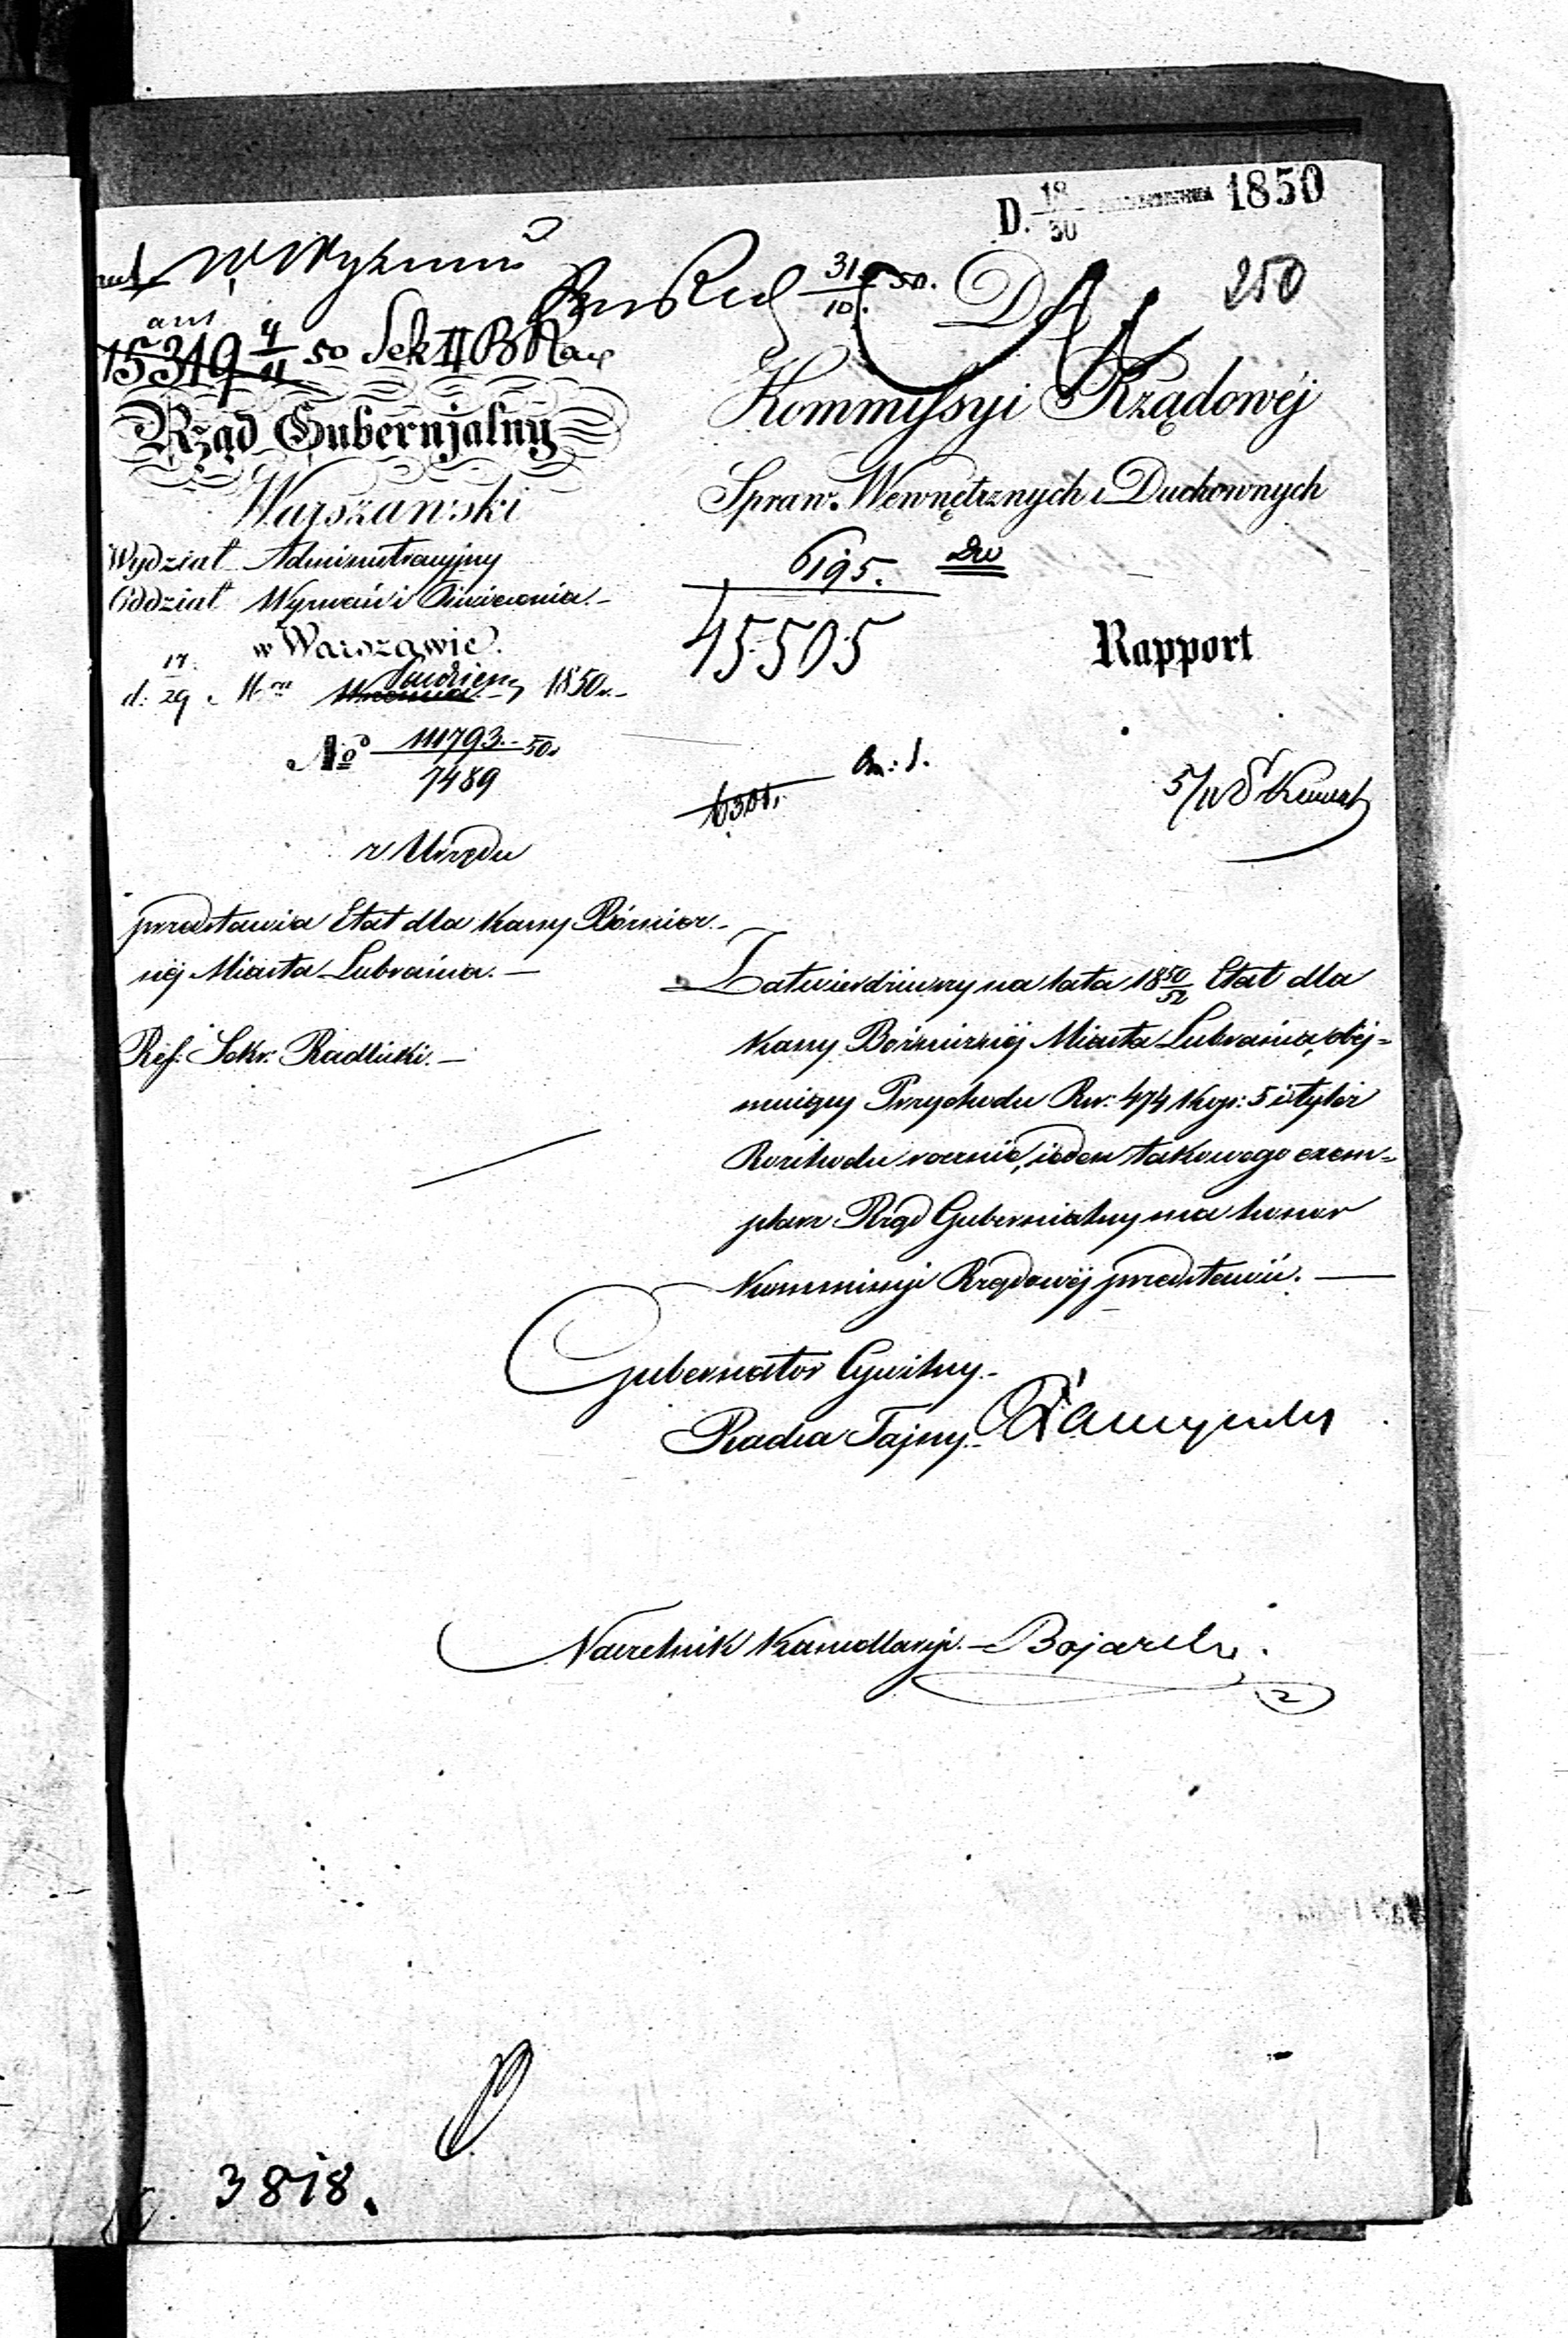 D. 18/30 1850
250
31/10 50.
15319 4/11 50 Sek II B
Rząd Gubernjalny
Warszawski
Wydział Administracyjny
Oddział Wyznań i Oświecenia.
w Warszawie.
d. 17/29 Mca Październ 1850 r.
No 111793/7489 50
z Urzędu
przedstawia Etat dla Kassy Bóżnicz-
néj Miasta Lubrańca. —
Ref: Sekr: Radlicki. —
Do
Kommyssyi Rządowéj
Spraw. Wewnętrznych i Duchownych
6195.
45505
Rapport
6301.
Zatwierdziwszy na lata 1850/52 Etat dla
Kassy Bóżniczéj Miasta Lubrańca, obéj-
muiący Przychodu Rsr: 474 Kop: 5 i tyleż
Rozchodu rocznie, ieden takowego exem-
plarz Rząd Gubernialny ma honor
Kommissyi Rządowéj przedstawić. —
Gubernator Cywilny
Radca Tajny
Naczelnik Kancellaryi. — Bojarski
2
3818.